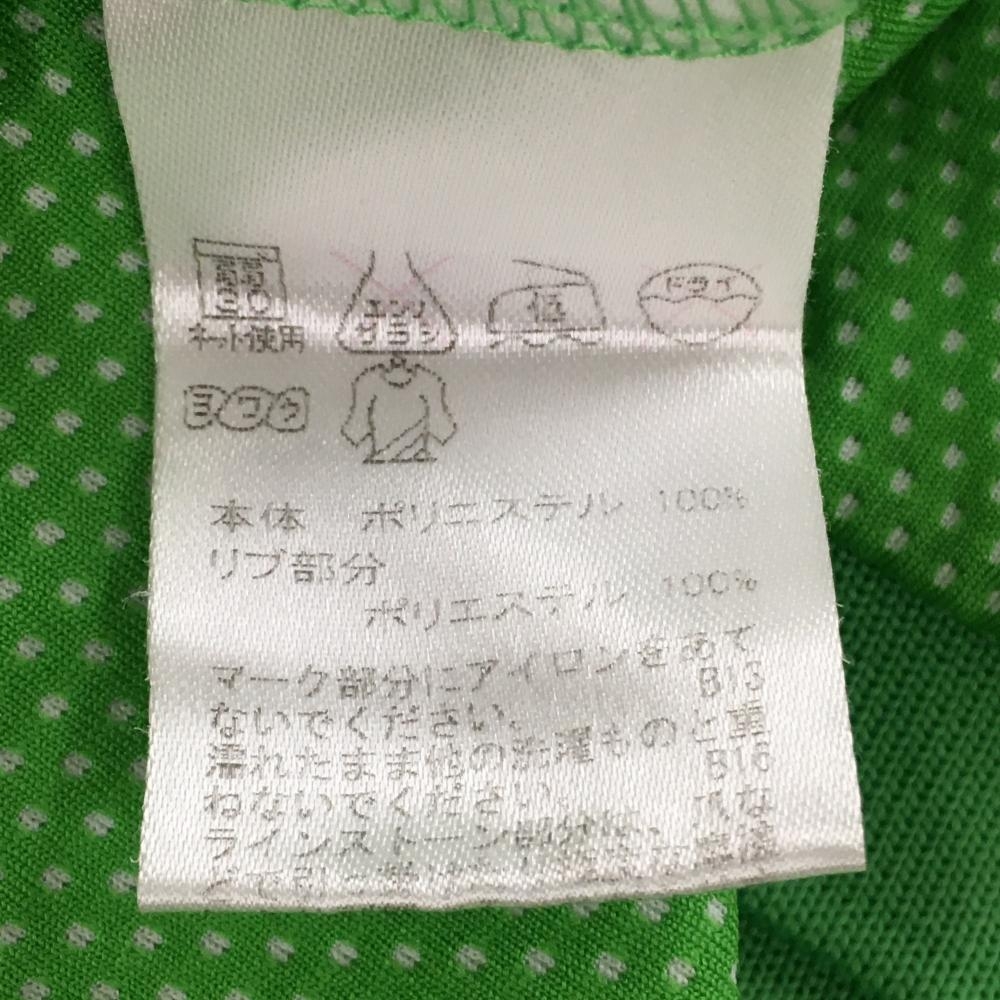 弱 30 エンソ サラシ 低 ドライ
ネット使用
ヨワク
本体 ポリエステル 100%
リブ部分
ポリエステル 100%
マーク部分にアイロンをあて
B13
ないでください。
濡れたまま他の洗濯ものと重
B16
ねないでください。
ラインストーン部分は、